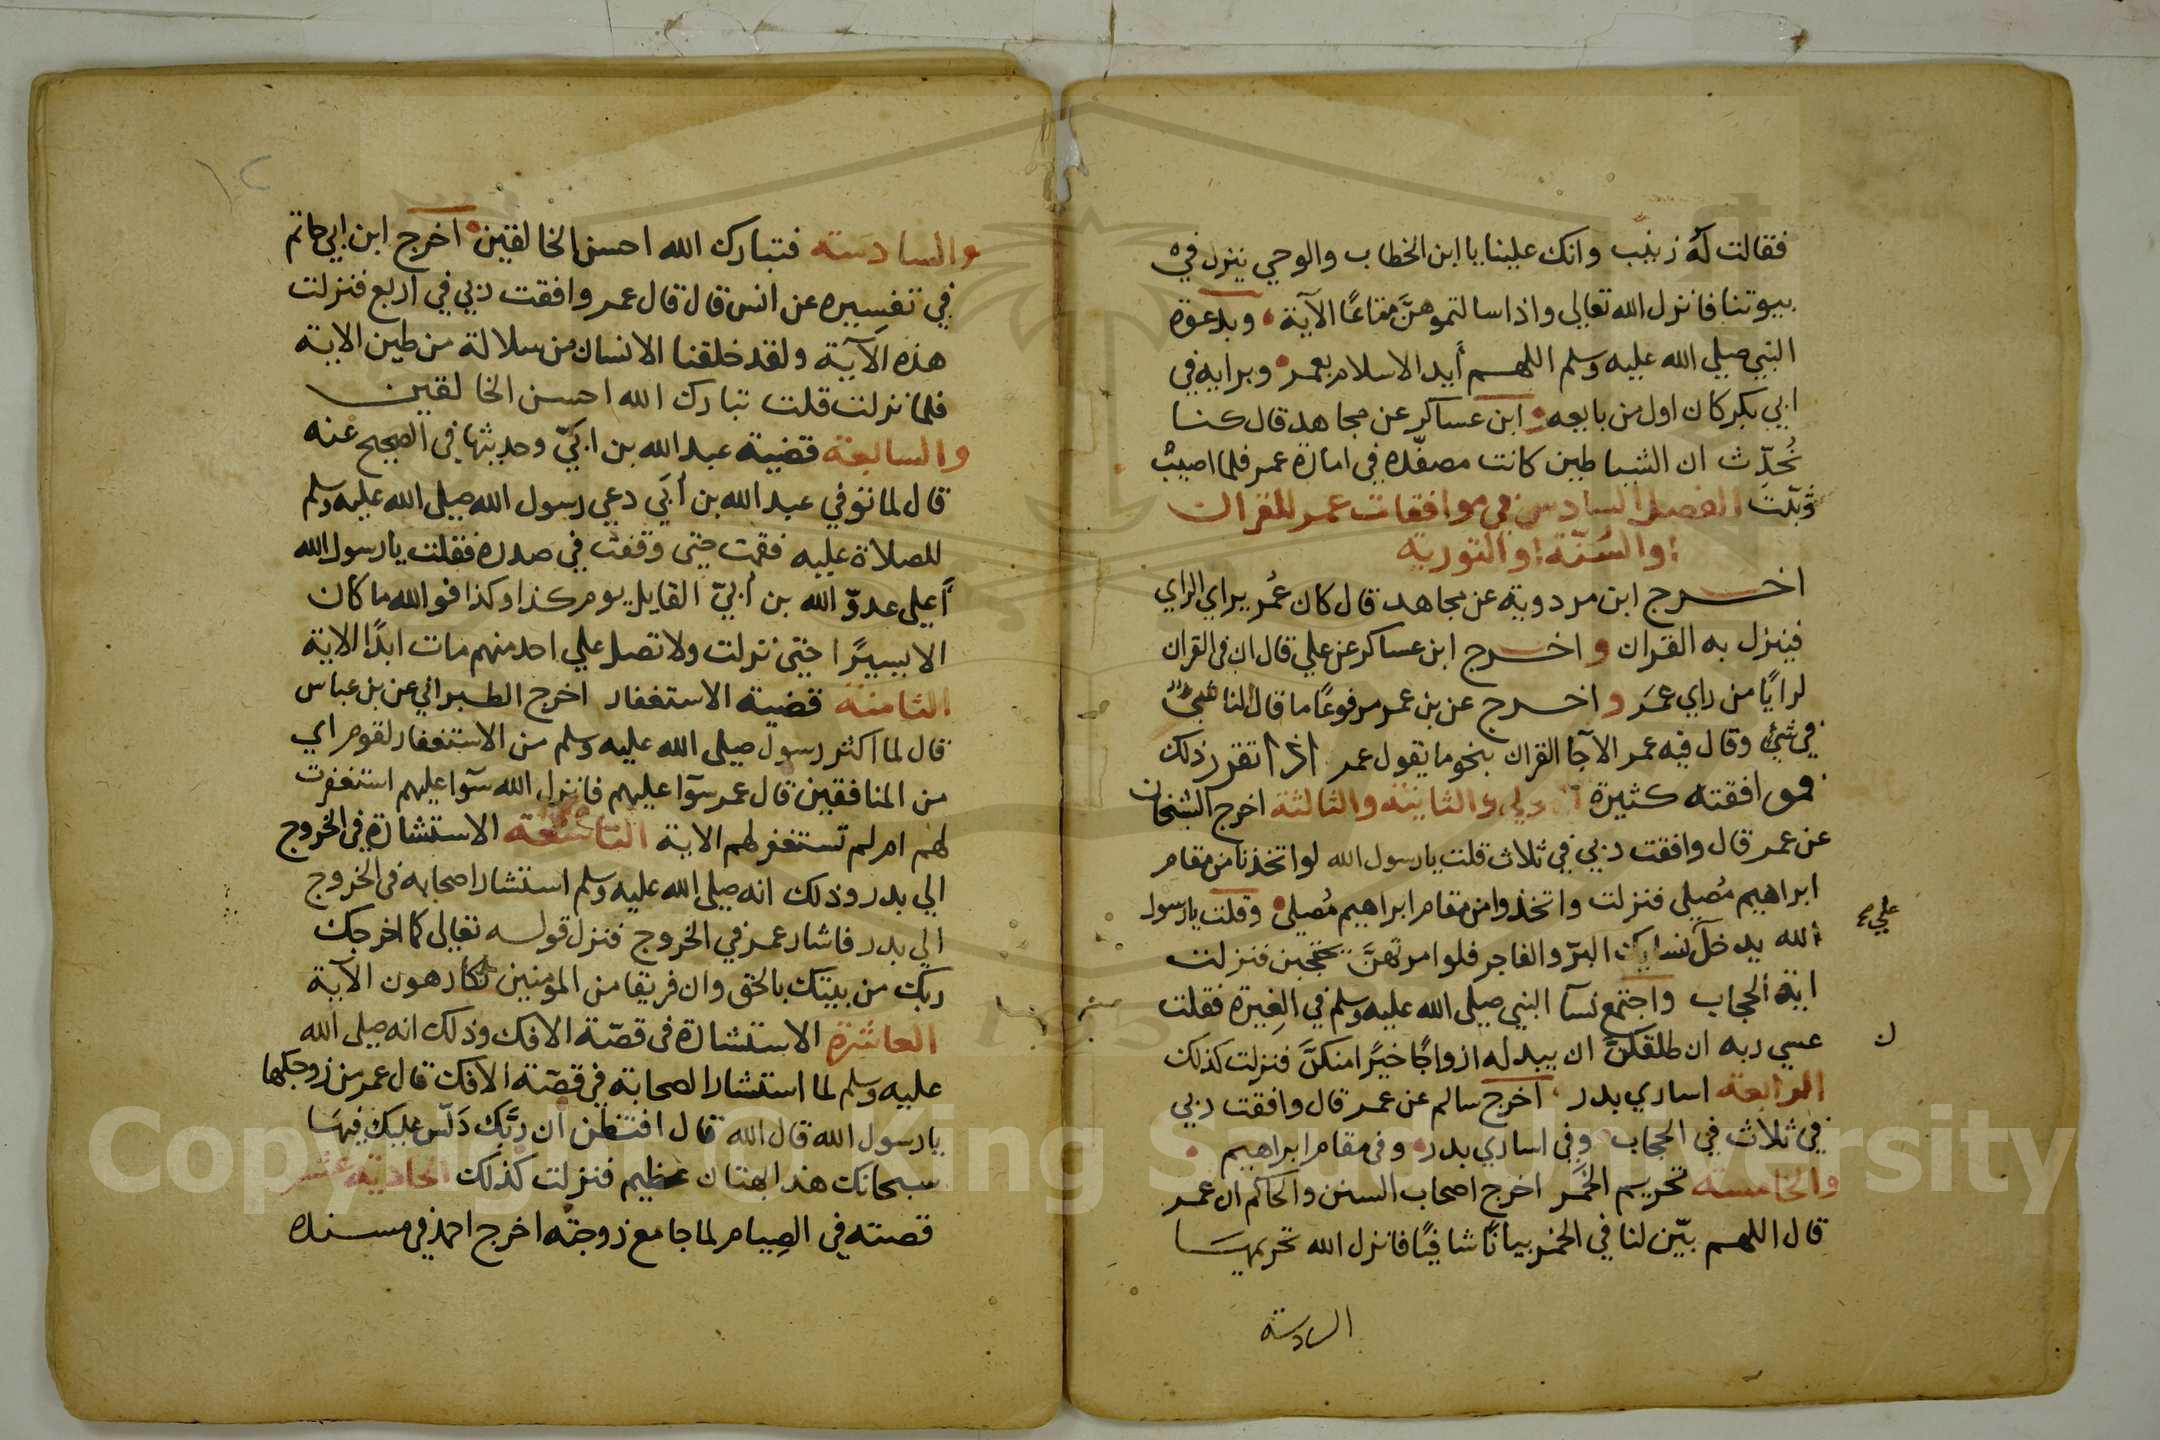 فقالت له زينب وانك علينا يا ابن الخطاب والوحي ينزل في
بيوتنا فانزل الله تعالى واذا سالتموهنّ متاعًا الآية وبدعوة
النبي صلي الله عليه وسلم اللهم أيد الاسلام بعمر وبرايه في
ابي بكر كان اول من بايعه و ابن عساكر عن مجاهد قال كنا
نُحدّث ان الشياطين كانت مصفّدة في امارة عمر فلما اصيب
بُثّت الفصل السادس في موافقات عمر للقران
او السُنّة او التورية
اخرج ابن مردوية عن مجاهد قال كان عُمر يراي الراي
فينزل به القران و اخرج ابن عساكر عن علي قال ان في القران
لرايًا من راي عمَر و اخرج عن بن عمر مرفوعًا ما قال الناس
في شئ وقال فيه عمر الآجا القران بنحو ما يقول عمر اذا تقرر ذلك
فموافقته كثيرة الاولي والثانية والثالثة اخرج الشيخان
عن عمر قال وافقت ربي في ثلاث قلت يا رسول الله لو اتخذنا من مقام
ابراهيم مُصلي فنزلت واتخذوا من مقام ابراهيم مُصلي وقلت يا رسول
الله يدخل نسايك البرّ والفاجر فلو امرتهنّ يحتجبن فنزلت
علي
اية الحجاب واجتمع نسآ النبي صلى الله عليه وسلم في الغيرة فقلت
عسي ربه ان طلقكنّ ان يبدله ازواجًا خيرًا منكنّ فنزلت كذلك
ن
الرابعة اساري بدر اخرج سالم عن عمر قال وافقت ربي
في ثلاث في الحجاب وفي اساري بدر وفي مقام ابراهيم
والخامسة تحريم الخَمر اخرج اصحاب السنن والحاكم ان عمر
قال اللهم بيّن لنا في الخمر بيانًا شافيًا فانزل الله تحريمها
السادسة
١٢
والسادسة فتبارك الله احسن الخالقين اخرج ابن ابي حاتم
في تفسيره عن انس قال قال عمر وافقت ربي في اربع فنزلت
هذه الآية ولقد خلقنا الانسان من سلالة من طين الاية
فلما نزلت قلت تبارك الله احسن الخالقين
والسابعة قضية عبد الله بن ابيّ وحديثها في الصحيح عنه
قال لما توفي عبد الله بن أبي دعي رسول الله صلى الله عليه وسلم
للصلاة عليه فقمت حتى وقفت في صدره فقلت يا رسول الله
أعلى عدوّ الله بن أبيّ القايل يوم كذا وكذا فوالله ما كان
الا يسيرًا حتى نزلت ولا تصل علي احد منهم مات ابدًا الاية
الثامنة قضية الاستغفار اخرج الطبراني عن بن عباس
قال لما اكثر رسول صلى الله عليه وسلم من الاستغفار لقوم اي
من المنافقين قال عمر سوآ عليهم فانزل الله سوآ عليهم استغفرت
لهم ام لم تستغفر لهم الاية التاسعة الاستشارة في الخروج
الي بدر وذلك انه صلى الله عليه وسلم استشار اصحابه في الخروج
الي بدر فاشار عمر في الخروج فنزل قوله تعالى كما اخرجك
ربك من بيتك بالحق وان فريقا من المومنين لكارهون الآية
العاشرة الاستشارة في قصّة الافك وذلك انه صلى الله
عليه وسلم لما استشار الصحابة في قصّة الافك قال عمر من زوجكها
يا رسول الله قال الله قال افتظن أن ربّك دَلّس عليك فيها
سبحانك هذا بهتان عظيم فنزلت كذلك الحادية عشر
قصته في الصِيام لما جامع زوجته اخرج احمد في مسنده
Copyright © King Saud University